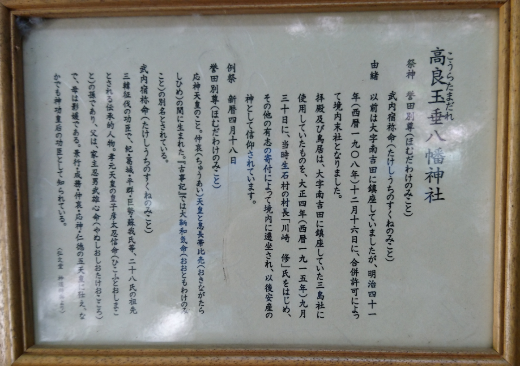 高良玉垂八幡神社
こうらたまだれ
祭神　誉田別尊(ほむだわけのみこと)
武内宿祢命(たけしうちのすくねのみこと)
由緒　以前は大字南吉田に鎮座していましたが、明治四十一
年(西暦一九〇八年)十二月十六日に、合併許可によっ
て境内末社となりました。
拝殿及び鳥居は、大字南吉田に鎮座していた三島社に
使用していたものを、大正四年(西暦一九一五年)九月
三十日に、当時生石村の村長「川崎　修」氏をはじめ、
その他の有志の寄付によって境内に遷坐され、以後安産の
神として信仰されています。
例祭　新暦四月十八日
誉田別尊(ほむだわけのみこと)
応神天皇のこと。仲哀(ちゅうあい)天皇と息長帯比売(おきながたら
しひめ)の間に生まれた。「古事記」では大鞆和気命(おおともわけのみ
こと)の別名とされている。
武内宿祢命(たけしうちのすくねのみこと)
三韓征伐の功臣で、紀・葛城・平群・巨勢・蘇我氏等、二十八氏の祖先
とされる伝承的人物。孝元天皇の皇子彦太忍信命(ひこふとおしまこ
と)の孫であり、父は、屋主忍男武雄心命(やぬしおしおたけおごころ)
で、母は影媛である。景行・成務・仲哀・応神・仁徳の五天皇に仕え、な
かでも神功皇后の功臣として知られている。